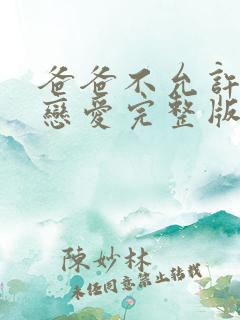 爸爸不允許
戀愛完整版
陳妙林
未經同意禁止轉載